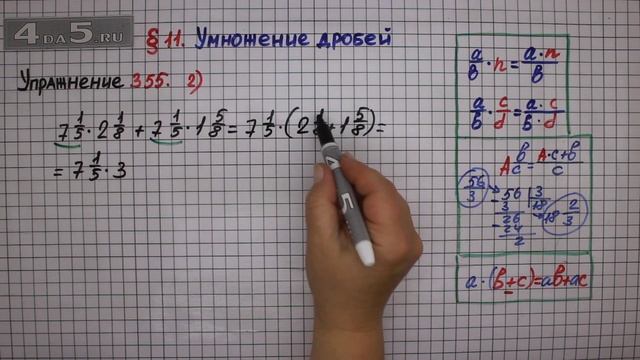 4DA5.RU
§ 11. Умножение дробей
Упражнение 355. 2)
7 1/5 · 2 1/8 + 7 1/5 · 1 5/8 = 7 1/5 · (2 1/8 + 1 5/8) =
= 7 1/5 · 3
a/b · n = a·n/b
a/b · c/d = a·c/b·d
A b/c = A·c+b/c
56/3
56 | 3
- 3 | 18
26
- 24
2
18 2/3
a·(b+c)=ab+ac